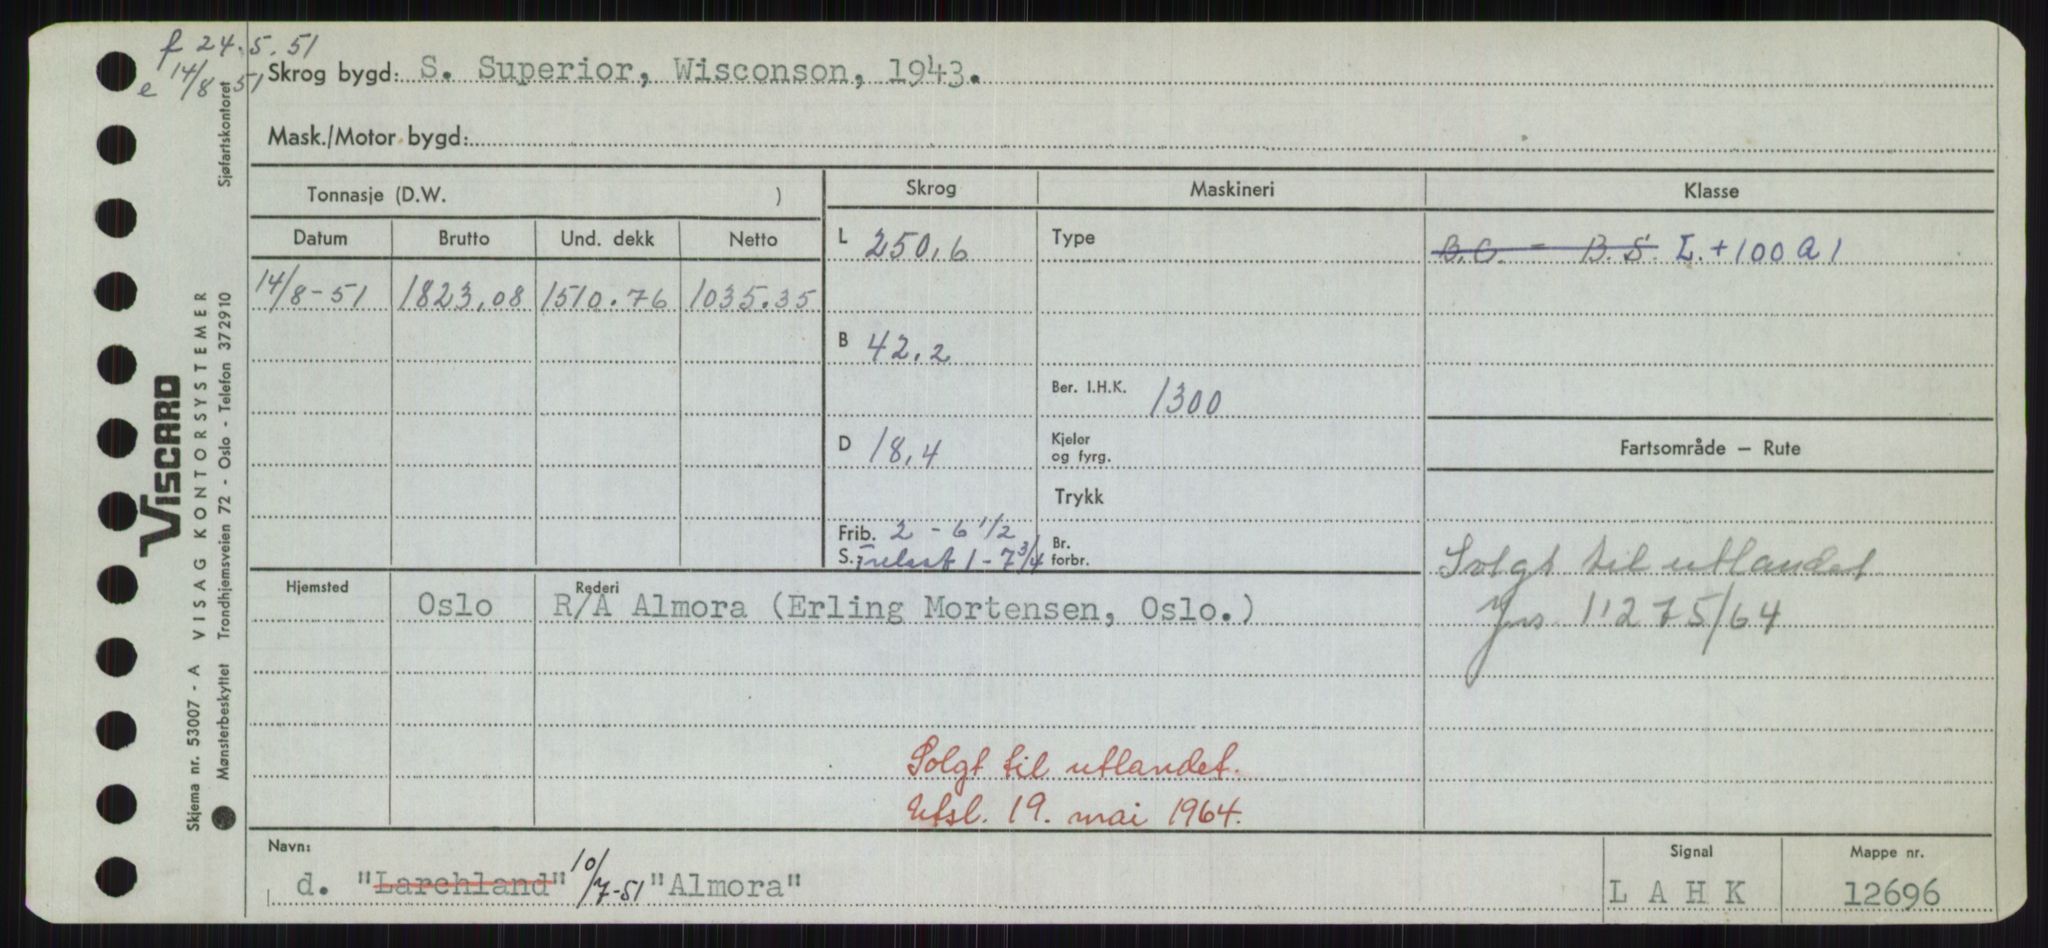 f 24.5.51
e 14/8-51
Skrog bygd: S. Superior, Wisconson, 1943.
Mask./Motor bygd:
Tonnasje (D.W. )
Skrog
Maskineri
Klasse
Datum Brutto Und. dekk Netto
14/8-51 1823,08 1510.76 1035.35
L 250,6
B 42,2
D 18,4
Frib. 2 - 6 1/2
S. Trelast 1 - 7 3/4
Type
Ber. I.H.K. 1300
Kjeler
og fyrg.
Trykk
Br.
forbr.
B.C. - B.S. L. +100 A 1
Fartsområde — Rute
Solgt til utlandet
Jnr 11275/64
Hjemsted
Rederi
Oslo R/A Almora (Erling Mortensen, Oslo.)
Solgt til utlandet.
Utsl. 19. mai 1964.
Navn:
d. "Larchland" 10/7-51 "Almora"
Signal
L A H K
Mappe nr.
12696
VISCARD
Skjema nr. 53007 - A VISAG KONTORSYSTEMER
Mønsterbeskyttet Trondhjemsveien 72 - Oslo - Telefon 372910
Sjøfartskontoret